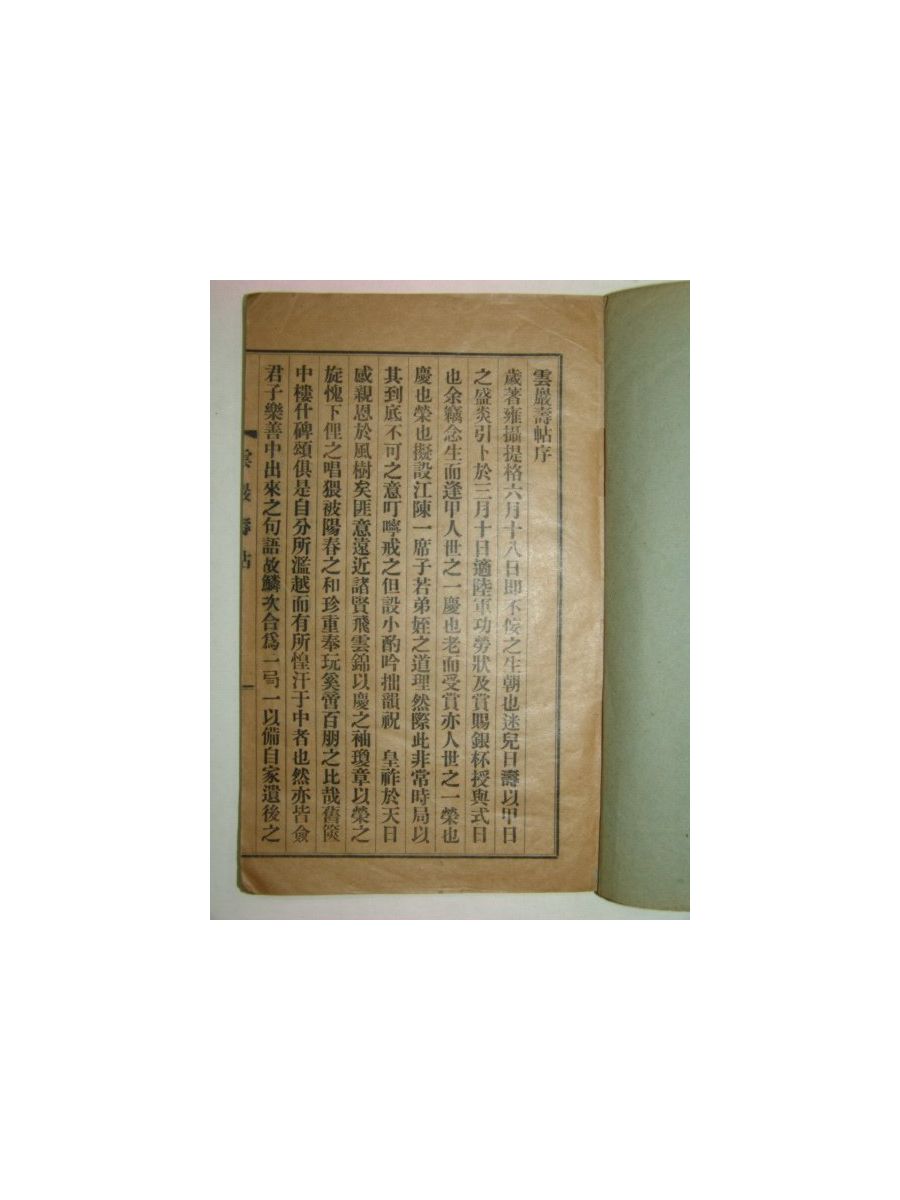 雲巖壽帖序
歲著雍攝提格六月十八日卽不佞之生朝也迷兒曰壽以甲日
之盛炎引卜於三月十日適陸軍功勞狀及賞賜銀杯授與式日
也余竊念生而逢甲人世之一慶也老而受賞亦人世之一榮也
慶也榮也擬設江陳一席子若弟姪之道理然際此非常時局以
其到底不可之意叮嚀戒之但設小酌吟拙韻祝　皇祚於天日
感親恩於風樹矣匪意遠近諸賢飛雲錦以慶之袖瓊章以榮之
旋愧下俚之唱猥被陽春之和珍重奉玩奚啻百朋之比哉舊篋
中櫻什碑頌俱是自分所濫越而有所惶汗于中者也然亦皆僉
君子樂善中出來之句語故鱗次合爲一局一以備自家遺後之
雲巖壽帖
一